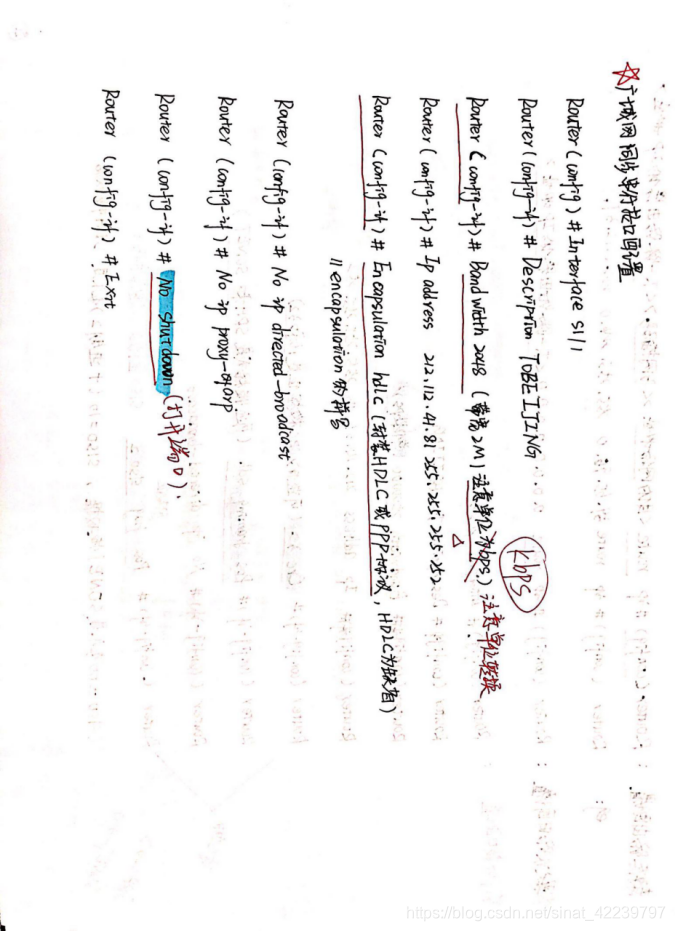 ☆广域网同步串行接口配置
Router (config) # Interface s1/1
Router (config-if) # Description TOBEIJING
Router (config-if) # Bandwidth 2048 (带宽2M) 注意单位为bps.) 注意单位转换
kbps
Router (config-if) # Ip address 212.112.41.81 255.255.255.252
Router (config-if) # Encapsulation hdlc (封装HDLC或PPP协议, HDLC为缺省)
11 encapsulation 的拼写
Router (config-if) # No ip directed-broadcast
Router (config-if) # No ip proxy-arp
Router (config-if) # No shutdown (打开端口).
Router (config-if) # Exit
https://blog.csdn.net/sinat_42239797